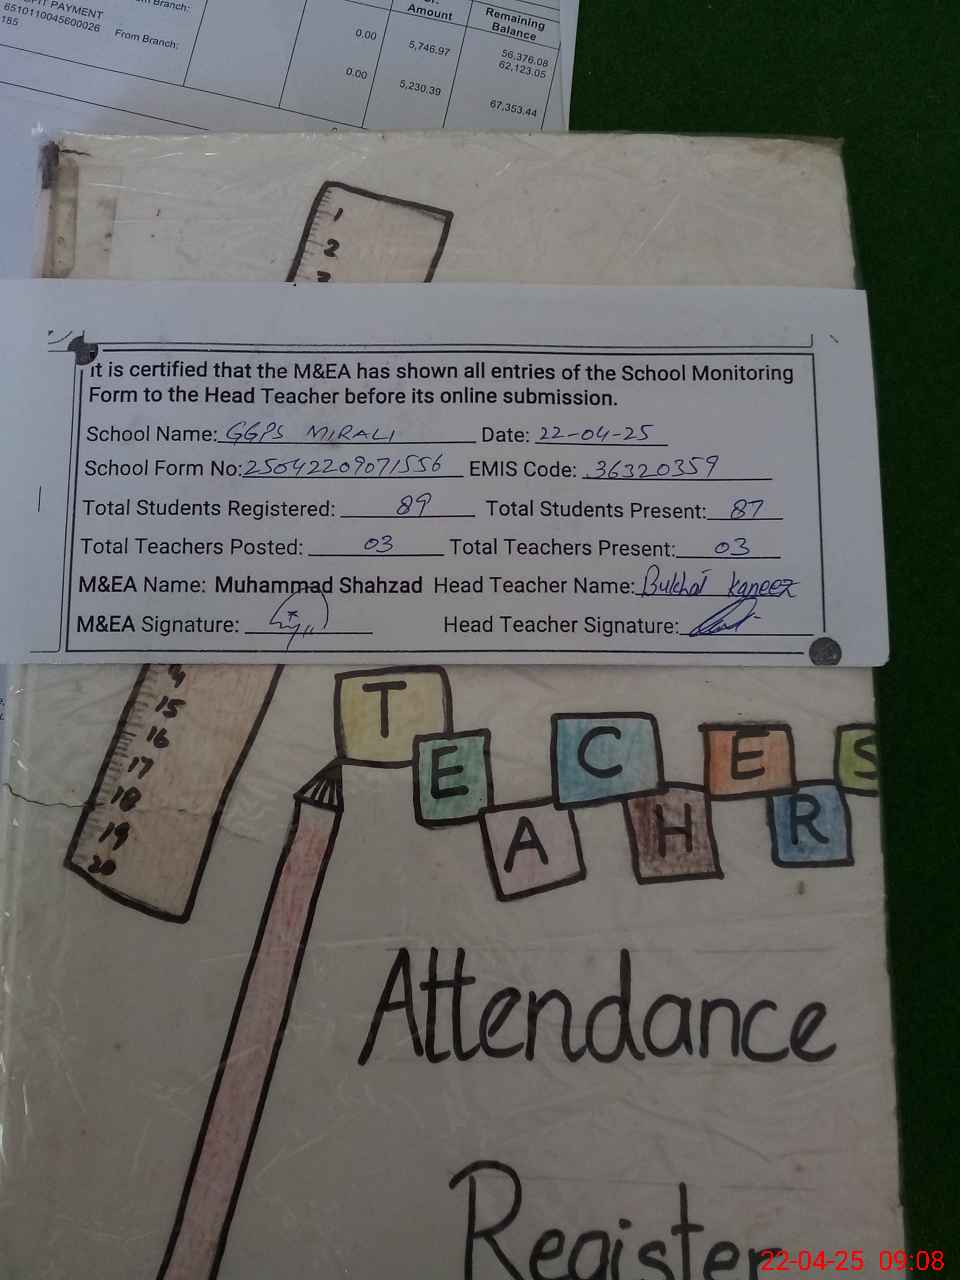 PAYMENT
6510110045600026
185
From Branch:
Branch:
Amount
Remaining
Balance
0.00
5,746.97
56,376.08
62,123.05
0.00
5,230.39
67,353.44
1
2
3
it is certified that the M&EA has shown all entries of the School Monitoring
Form to the Head Teacher before its online submission.
School Name: GGPS MIRALI Date: 22-04-25
School Form No: 25042209071556 EMIS Code: 36320359
Total Students Registered: 89 Total Students Present: 87
Total Teachers Posted: 03 Total Teachers Present: 03
M&EA Name: Muhammad Shahzad Head Teacher Name: Kaneez
M&EA Signature: Head Teacher Signature:
15
16
17
18
19
20
TEACHERS
Attendance
Register
22-04-25 09:08